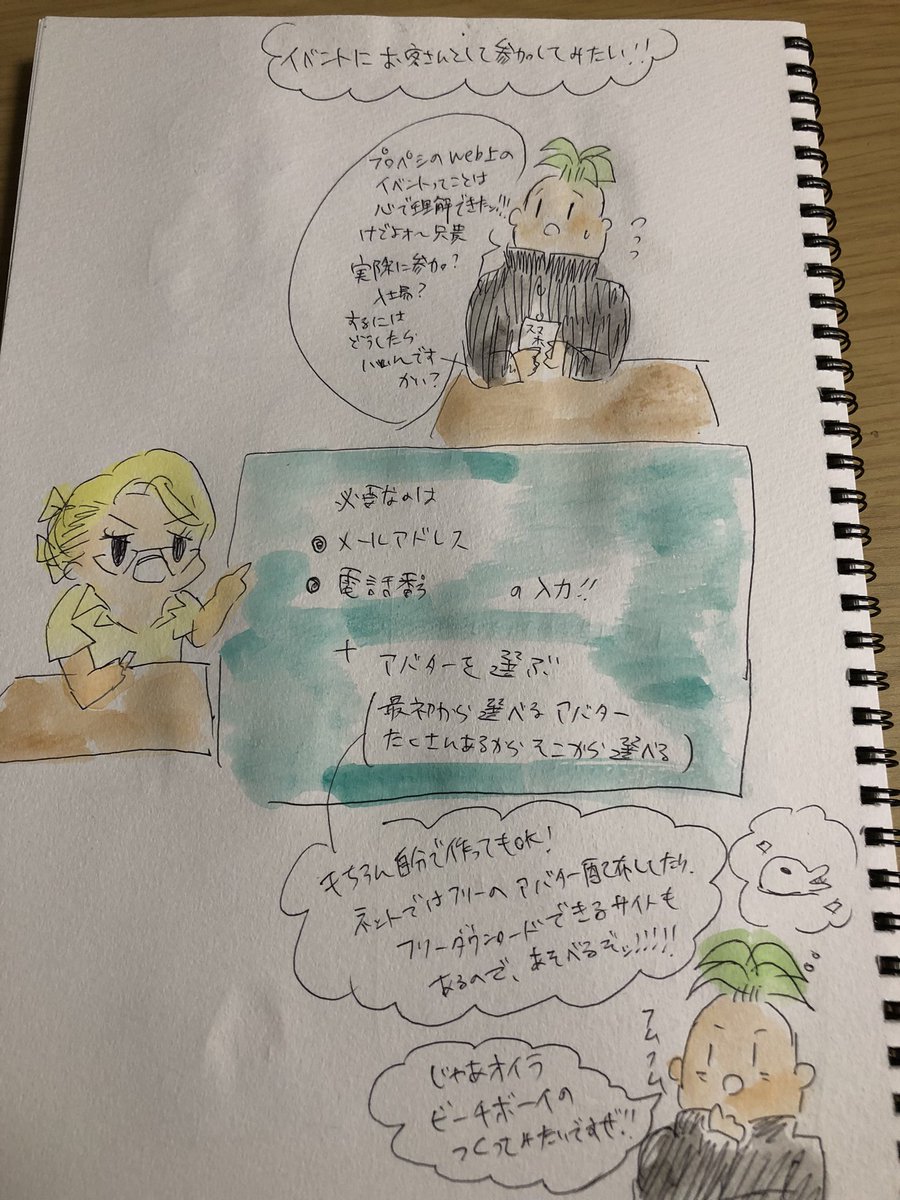 イベントに お客さんとして参加してみたい!!
プロペシのweb上の
イベントってことは
心で理解できたッ!!!
けどよォ〜兄貴
実際に参加?
入場?
するには
どうしたら
いいんです
かい?
スマホ
必要なのは
◎ メールアドレス
◎ 電話番号 の入力!!
+ アバターを選ぶ
(最初から選べるアバター
たくさんあるからそこから選べる)
もちろん自分で作ってもOK!
ネットではフリーのアバター配布してたり、
フリーダウンロードできるサイトも
あるので、あそべるぞッ!!!!!
フムフム
じゃあオイラ
ビーチボーイの
つくってみたいですぜ!!